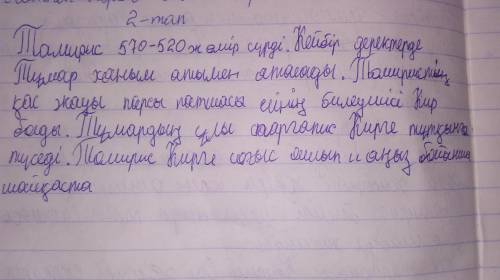 2-тап
Томирис 570-520 ж өмір сүрді. Кейбір деректерде
Тұмар ханым атымен аталады. Томиристің
қас жауы парсы патшасы елінің билеушісі Кир
болды. Тұмардың ұлы Спаргапис Кирге тұтқынға
түседі. Томирис Кирге соғыс ашып аңыз бойынша
шайқаста